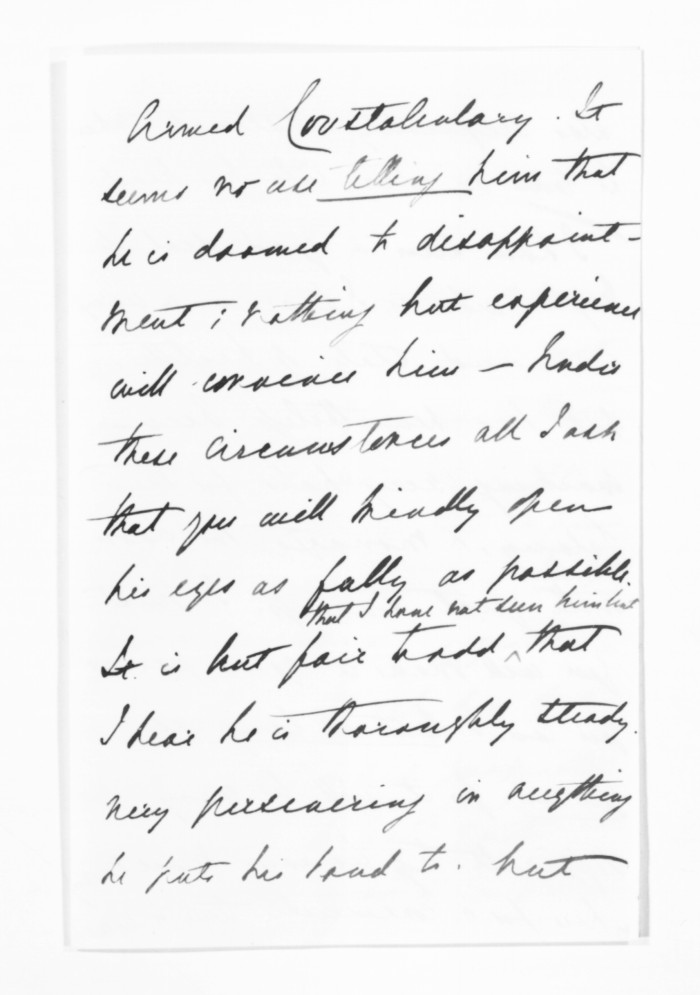 Armed Constabulary. It
seems no use telling him that
he is doomed to disappoint-
ment; nothing but experience
will convince him – Under
these circumstances all I ask
that you will kindly open
his eyes as fully as possible.
that I have not seen him but
It is but fair to add ^ that
I hear he is thoroughly steady,
very persevering in anything
he puts his hand to. but